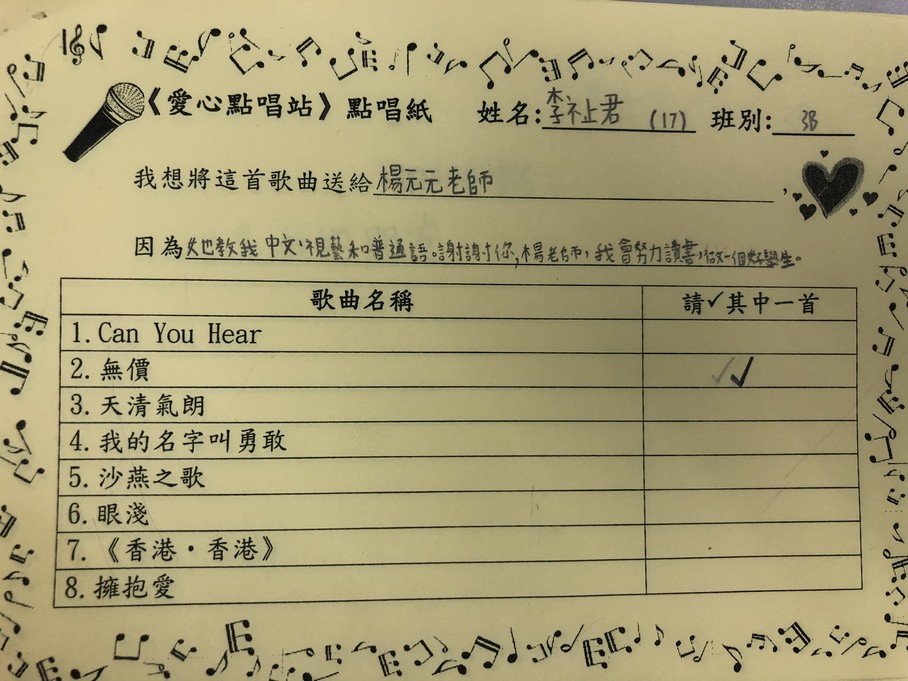 《愛心點唱站》點唱紙 姓名:李祉君 (17) 班別: 3B
我想將這首歌曲送給楊元元老師,
因為她教我中文、視藝和普通話。謝謝你,楊老師,我會努力讀書,做一個好學生。
歌曲名稱 請✓其中一首
1. Can You Hear
2. 無價 ✓✓
3. 天清氣朗
4. 我的名字叫勇敢
5. 沙燕之歌
6. 眼淺
7. 《香港·香港》
8. 擁抱愛